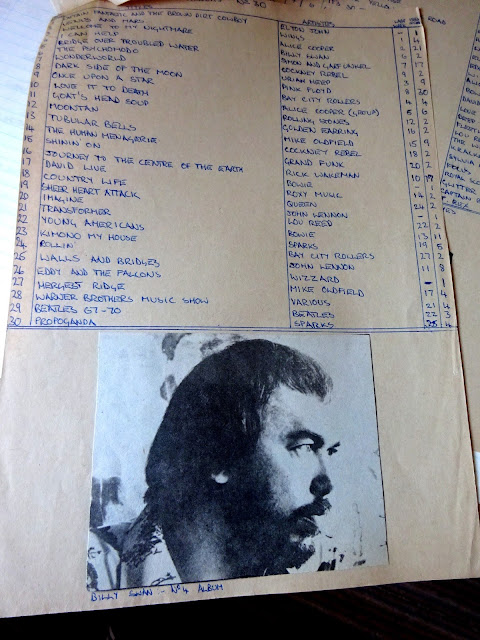 ARTISTES LAST
AND THE BROWN DIRT COWBOY ELTON JOHN
VENUS AND MARS WINGS
WELCOME TO MY NIGHTMARE ALICE COOPER
I CAN HELP BILLY SWAN
BRIDGE OVER TROUBLED WATER SIMON AND GARFUNKEL
THE PSYCHOMODO COCKNEY REBEL
WONDERWORLD URIAH HEEP
8 DARK SIDE OF THE MOON PINK FLOYD 8 20
9 ONCE UPON A STAR BAY CITY ROLLERS 4 4
10 LOVE IT TO DEATH ALICE COOPER (GROUP) 5 6
11 GOAT'S HEAD SOUP ROLLING STONES 12 2
12 MOONTAN GOLDEN EARRING 16 2
13 TUBULAR BELLS MIKE OLDFIELD 15 9
14 THE HUMAN MENAGERIE COCKNEY REBEL 18 2
15 SHININ' ON GRAND FUNK 20 2
16 JOURNEY TO THE CENTRE OF THE EARTH RICK WAKEMAN 10 17
17 DAVID LIVE BOWIE
18 COUNTRY LIFE ROXY MUSIC 14 2
19 SHEER HEART ATTACK QUEEN 24 2
20 IMAGINE JOHN LENNON
21 TRANSFORMER LOU REED
22 YOUNG AMERICANS BOWIE 13 11
23 KIMONO MY HOUSE SPARKS 19 5
24 ROLLIN BAY CITY ROLLERS 27 2
25 WALLS AND BRIDGES JOHN LENNON 11 8
26 EDDY AND THE FALCONS WIZZARD - 1
27 HERGEST RIDGE MIKE OLDFIELD 17 4
28 WARNER BROTHERS MUSIC SHOW VARIOUS 21 4
29 BEATLES 67-70 BEATLES 22 3
30 PROPOGANDA SPARKS 25 4
BILLY SWAN - No 4 ALBUM